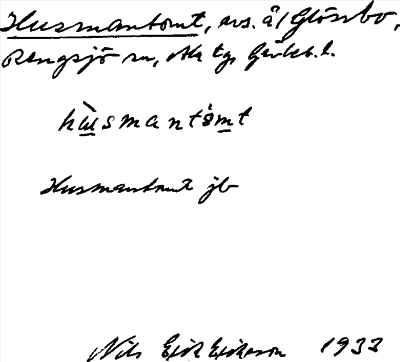 Husmantomt, avs. å/ Glössbo,
Rengsjö sn, Ala tg, Gävleb. l.
hùsmantòmt
Husmantomt jb
Nils Erik Eriksson 1933